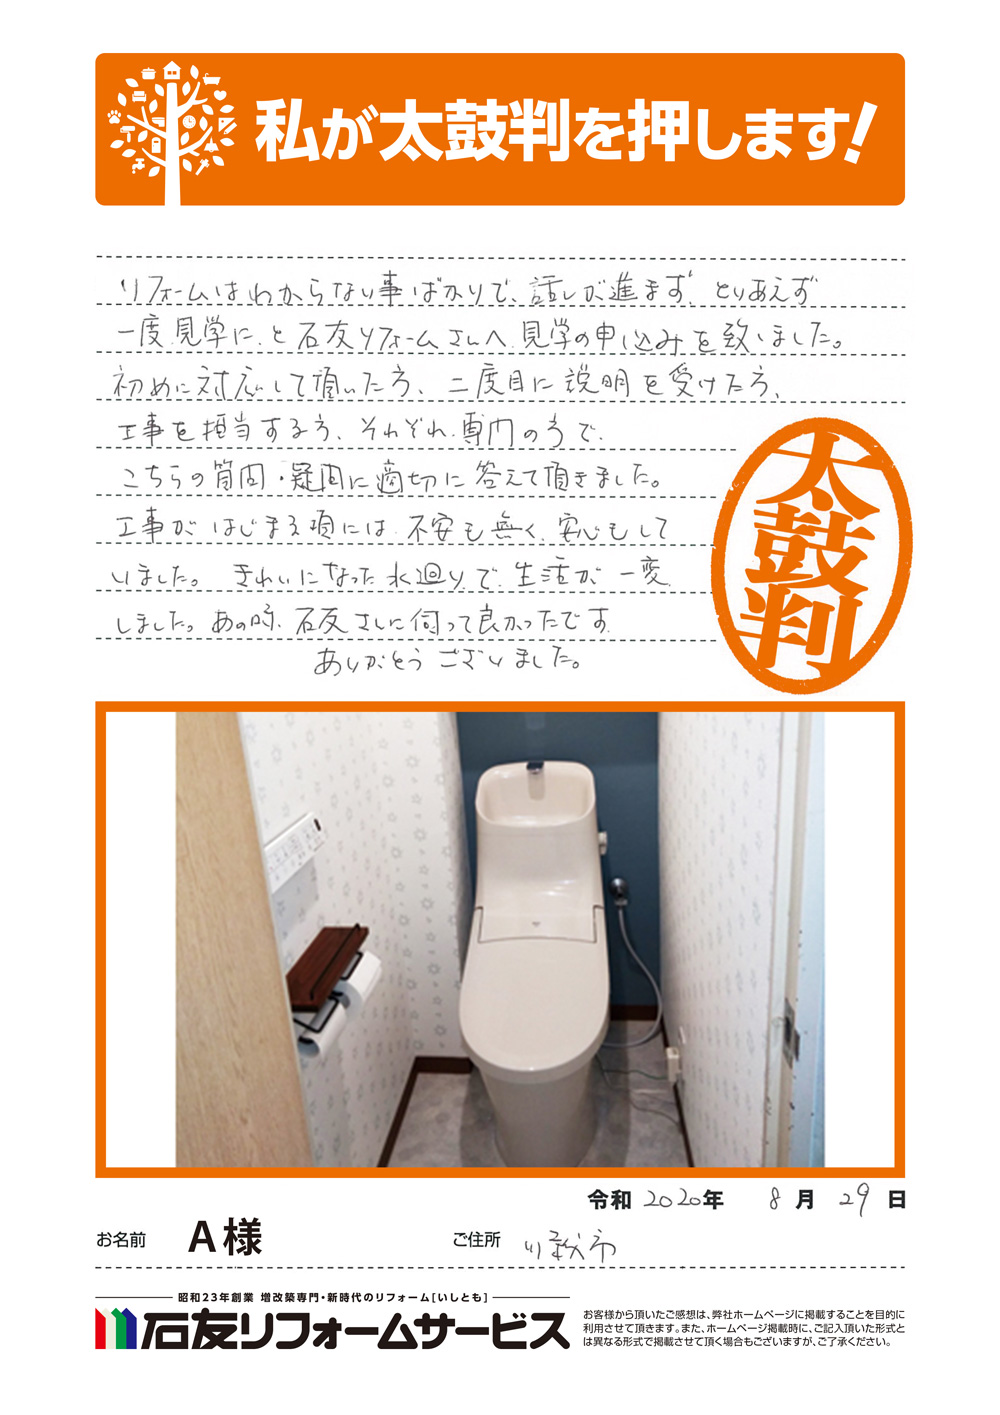 私が太鼓判を押します!
リフォームはわからない事ばかりで、話しが進まず、とりあえず
一度見学に、と石友リフォームさんへ見学の申し込みを致しました。
初めに対応して頂いた方、二度目に説明を受けた方、
工事を担当する方、それぞれ専門の方で、
こちらの質問・疑問に適切に答えて頂きました。
工事がはじまる頃には、不安も無く、安心もして
いました。きれいになった水廻りで、生活が一変
しました。あの時、石友さんに伺って良かったです。
ありがとうございました。
太鼓判
令和 2020年 8月 29日
お名前 A様 ご住所
昭和23年創業 増改築専門・新時代のリフォーム[いしとも]
石友リフォームサービス
お客様から頂いたご感想は、弊社ホームページに掲載することを目的に
利用させて頂きます。また、ホームページ掲載時に、ご記入頂いた形式と
は異なる形式で掲載させて頂く場合もございますが、ご了承ください。